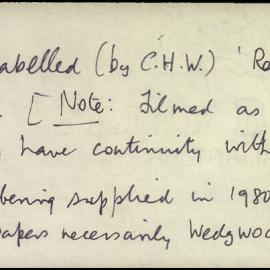 abelled (by C.H.W.) 'Ro
[Note: Filmed as
have continuity with
bering supplied in 1980
papers necessarily Wedgwoo